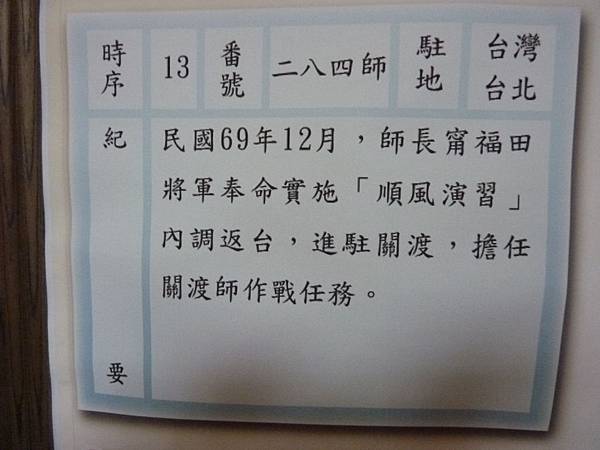 時序 13 番號 二八四師 駐地 台灣台北
紀要
民國69年12月，師長甯福田
將軍奉命實施「順風演習」
內調返台，進駐關渡，擔任
關渡師作戰任務。